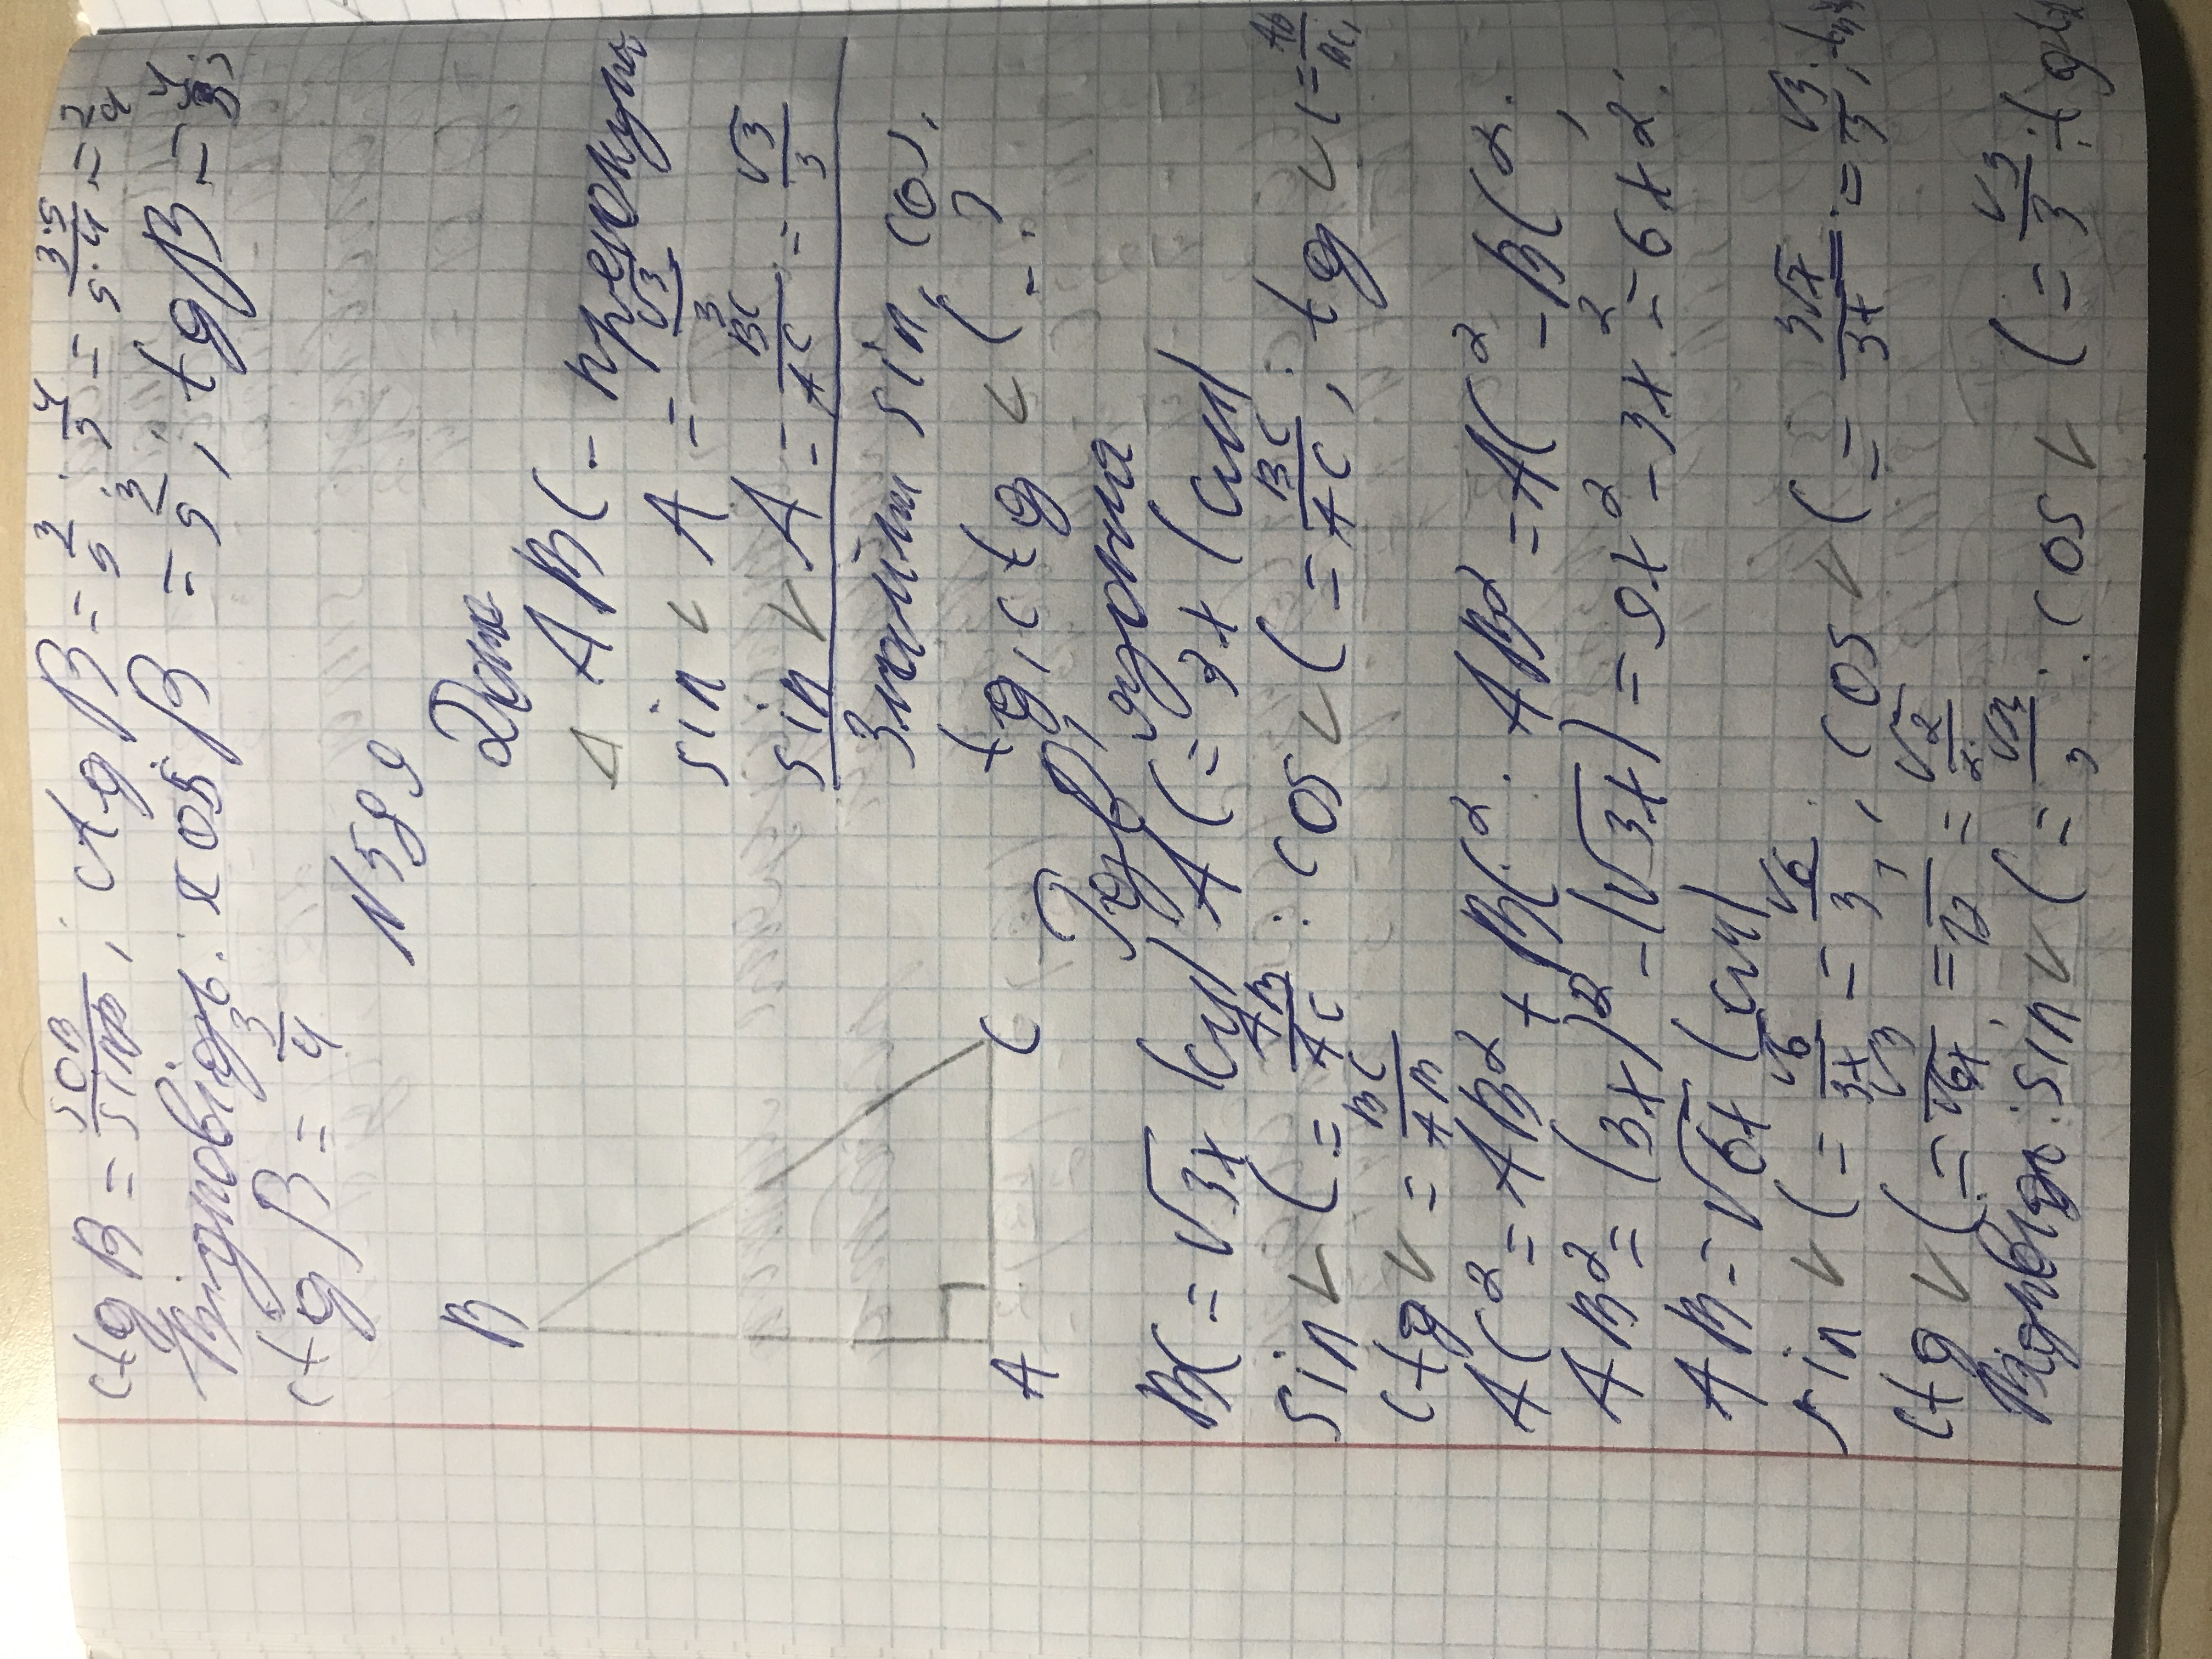 ctg B = cos B / sin B, ; ctg B = 3/5 : 4/5 = 3·5 / 5·4 = 3/4
Відповідь: cos B = 3/5, tg B = 4/3;
ctg B = 3/4
N 589
Дано
△ ABC - прямокутн
sin ∠ A = √3/3
sin ∠ A = BC/AC = √3/3
Знайти sin, cos,
tg, ctg ∠ C - ?
B
A
C
BC = √3x (см) AC = 3x (см)
sin ∠ C = AB/AC ; cos ∠ C = BC/AC, ; tg ∠ C = AB/BC,
ctg ∠ = BC/AB
AC² = AB² + BC². AB² = AC² - BC².
AB² = (3x)² - (√3x) = 9x² - 3x² = 6x².
AB = √6x (см)
sin ∠ C = √6/3x = √6/3, cos ∠ C = 3√x/3x = √3/3,
ctg ∠ C = √3/√6x = 1/√2 = √2/2.
Відповідь: sin ∠ C = √3/3 ; cos ∠ C = √3/3 ; tg